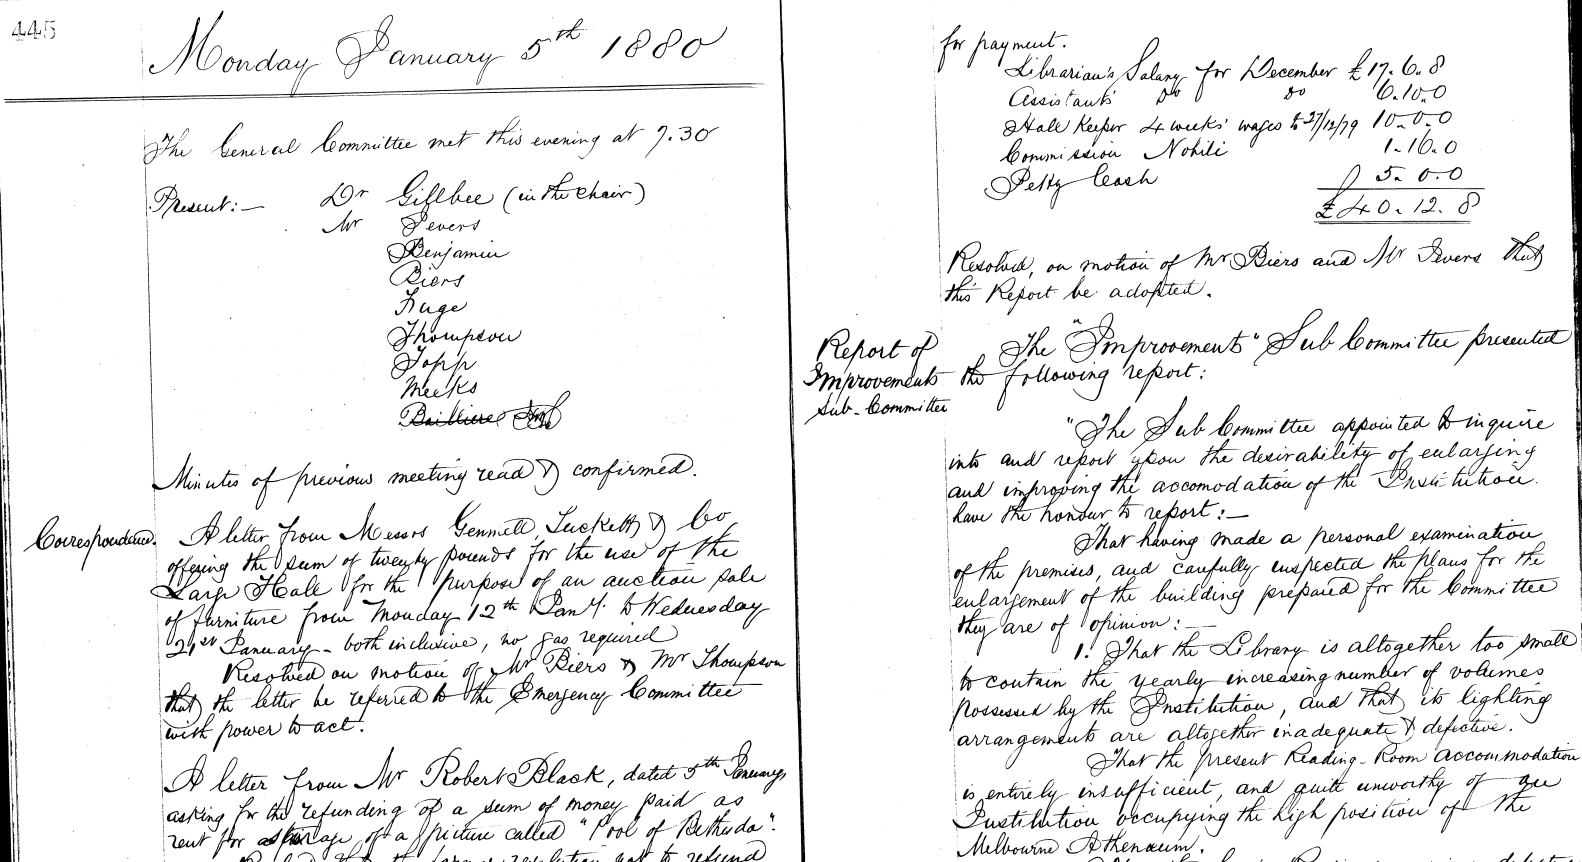 445
Monday January 5th 1880
The General Committee met this evening at 7.30
Present:— Dr Gillbee (in the chair)
Mr Levers
Benjamin
Biers
Fuge
Thompson
Topp
Meeks
Bailliere
Minutes of previous meeting read & confirmed.
Correspondence. A letter from Messrs Gemmell, Tuckett & Co
offering the sum of twenty pounds for the use of the
Large Hall for the purpose of an auction sale
of furniture from Monday 12th Jany. to Wednesday
21st January – both inclusive, no gas required
Resolved on motion of Mr Biers & Mr Thompson
that the letter be referred to the Emergency Committee
with power to act.
A letter from Mr Robert Black, dated 5th January,
asking for the refunding of a sum of money paid as
rent for storage of a picture called "Pool of Bethesda".
to refund
for payment.
Librarian's Salary for December £17.6.8
Assistants' Do Do 6.10.0
Hall Keeper 4 weeks' wages to 27/12/79 10.0.0
Commission Nobili 1.16.0
Petty Cash 5.0.0
£40.12.8
Resolved, on motion of Mr Biers and Mr Levers that
this Report be adopted.
Report of
Improvements
Sub-Committee
The "Improvements" Sub Committee presented
the following report:
"The Sub Committee appointed to inquire
into and report upon the desirability of enlarging
and improving the accomodation of the Institution.
have the honour to report:—
That having made a personal examination
of the premises, and carefully inspected the plans for the
enlargement of the building prepared for the Committee
they are of opinion:—
1. That the Library is altogether too small
to contain the yearly increasing number of volumes
possessed by the Institution, and that its lighting
arrangements are altogether inadequate & defective.
That the present Reading-Room accommodation
is entirely insufficient, and quite unworthy of an
Institution occupying the high position of the
Melbourne Athenæum.